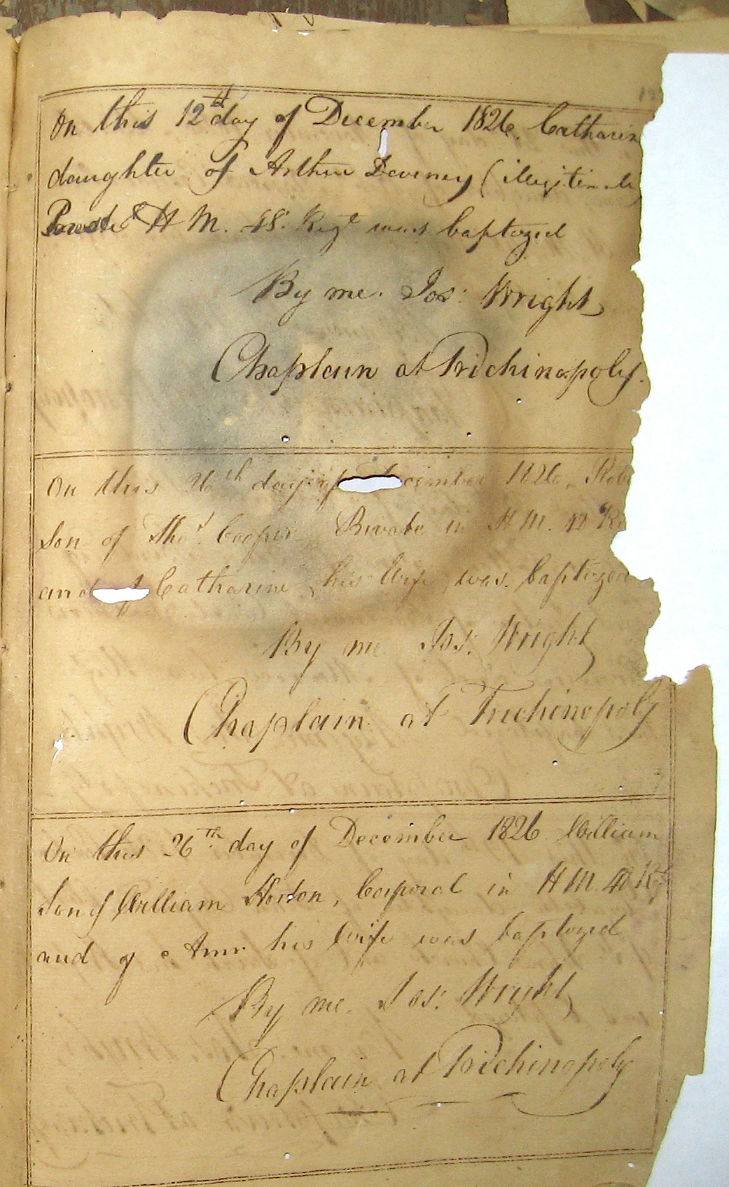 On this 12th day of December 1826. Catharin
daughter of Arthur Deveney (illegitimate)
Private H M. 48. Regt was baptized
By me. Jos: Wright
Chaplain at Trichinopoly.
On this 26th day of December 1826. Robe
Son of Thos Cooper Private in H M. R
and of Catharine his Wife was baptized
By me Jos: Wright
Chaplain at Trichinopoly
On this 26th day of December 1826. William
Son of William Horton, Corporal in H M. Rt
and of Ann his Wife was baptized
By me. Jos: Wright
Chaplain at Trichinopoly